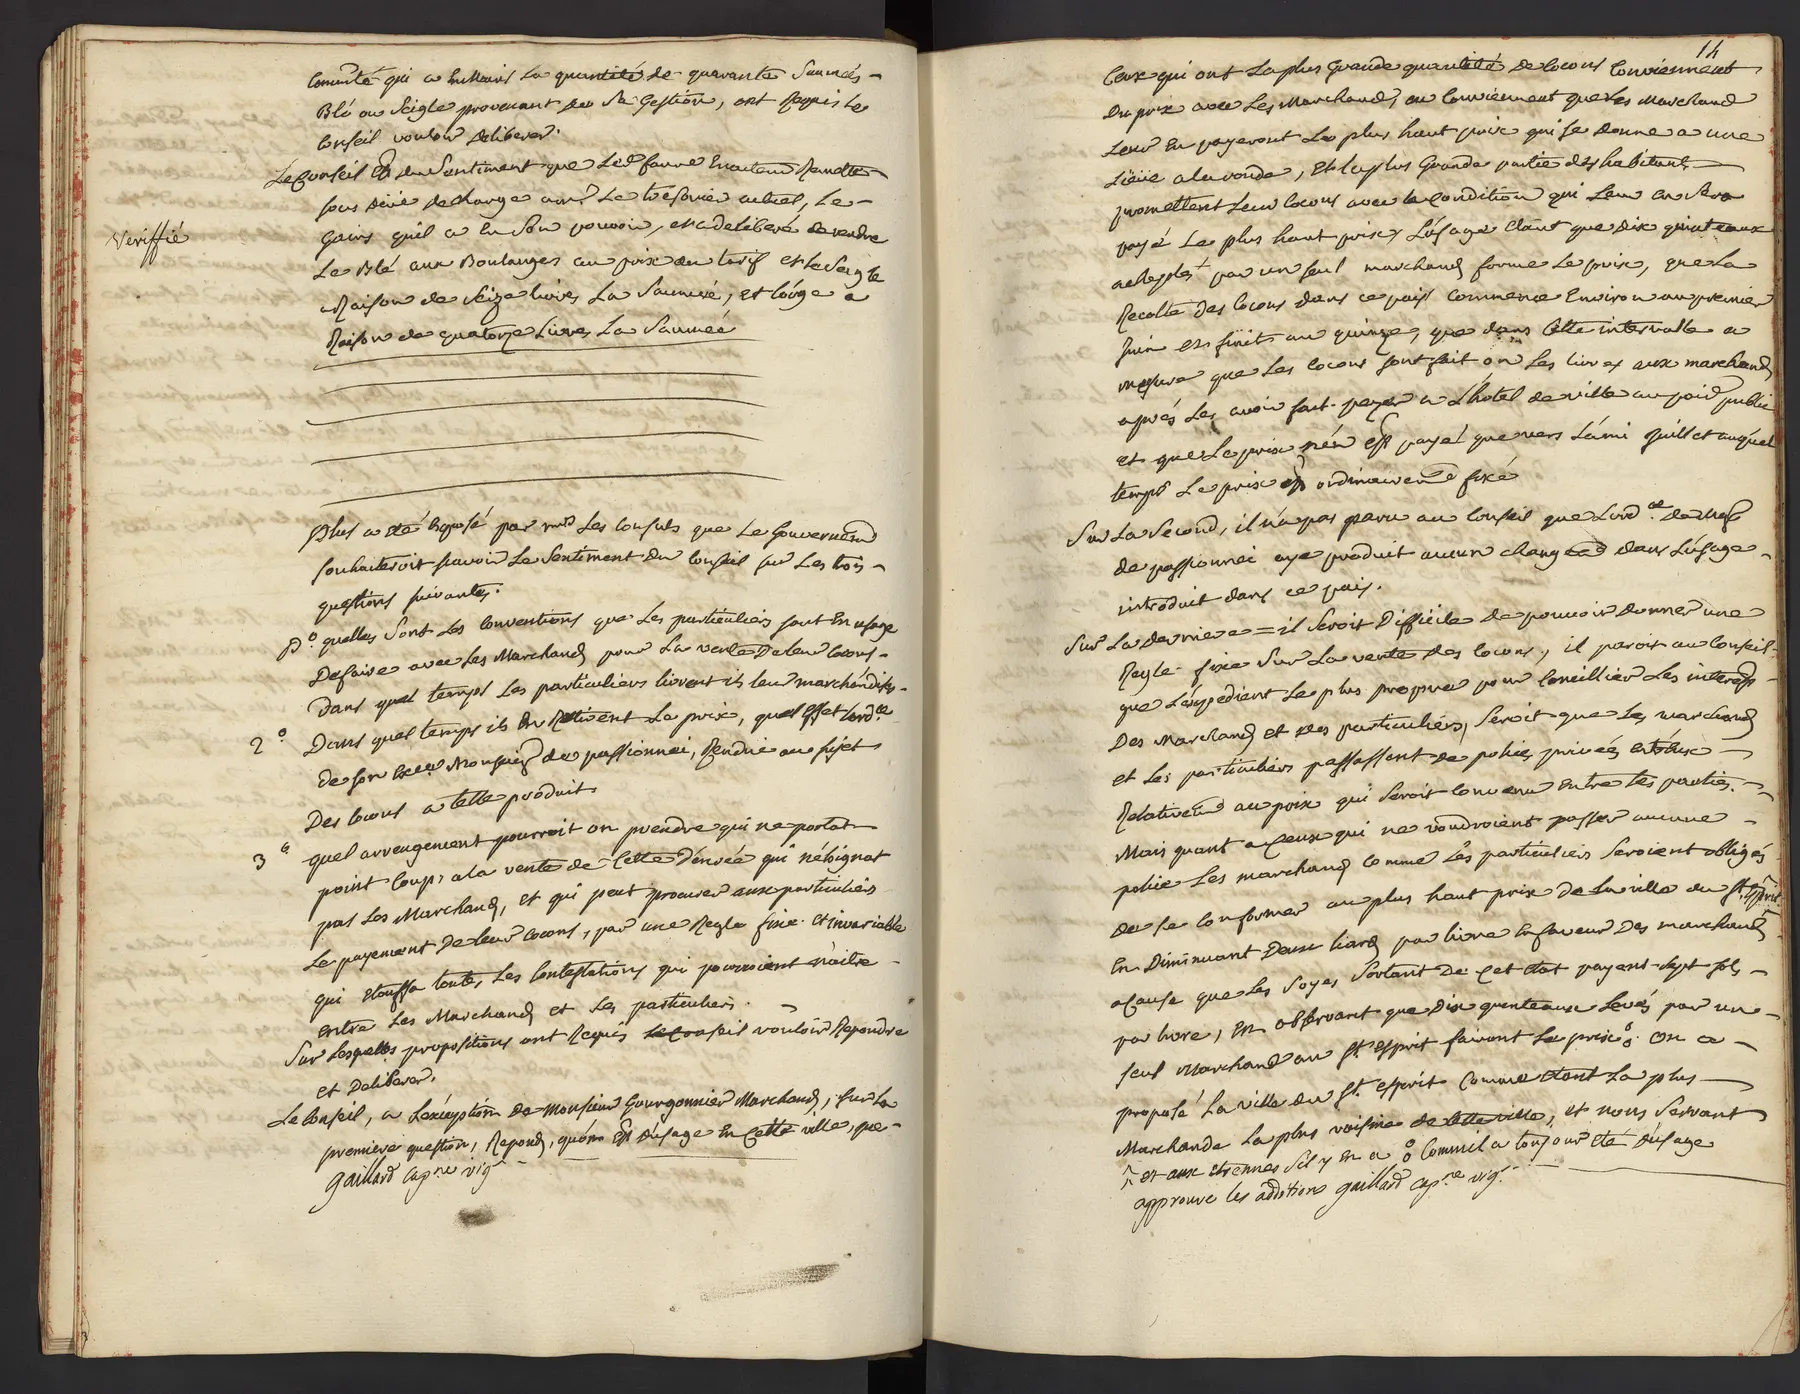 Comunté qui a En Mains La quantité de quarante Saumées
Blé ou Seigle provenant de Sa Gestion, ont Requis Le
Conseil vouloir deliberer.
Le Conseil Est du Sentiment que Led. faure Exacteur Remette
sous düe decharge aud. Le tresorier actuel, Le
Gains quil a En Son pouvoir, et a deliberé de vendre
Veriffié
Le Blé aux Boulangers au prix du tarif et le Seigle
a Raison de Seize livres La Saumée, et lorge a
Raison de quatorze Livres La Saumée
Plus a été Exposé par mrs Les Consuls que Le Gouvernemt
souhaiteroit scavoir Le Sentiment du Conseil sur Les trois
questions suivantes.
P.o quelles Sont Les Conventions que Les particuliers sont En usage
De faire avec Les Marchands pour La vente De leurs Cocons
Dans quel temps Les particuliers livrent ils leur marchandises
2.o Dans quel temps ils En Retirent Le prix, quel Effet Lordce
de son Exce Monseigr de passionnei, Rendüe au sujet
Des Cocons a telle produit
3.o quel arrengement pourroit on prendre qui ne portat
point Coup, a la vente de Cette Denrée qui n'eloignat
pas Les Marchands, et qui peut procurer aux particuliers
Le payement De leur Cocons, par une Regle fixe et invariable
qui Etouffa toutes Les Contestations qui pourroient naitre
entre Les Marchands et Les particuliers.
Sur Lesquelles propositions ont Requis Le Conseil vouloir Repondre
et Deliberer.
Le Conseil, a Lexeption de Monsieur Gourgonnier Marchand, sur La
premiere question, Repond, qu'on Est D'usage En Cette ville, que
gaillard capne vigr
14
Ceux qui ont La plus Grande quantité de Cocons Conviennent
Du prix avec Les Marchands, ou Conviennent que Les Marchand
Leur En payeront Le plus haut prix qui se donne a une
Lieüe a la ronde, Et la plus Grande partie des habitants
promettent Leur Cocons avec la Condition qui Leur En Sera
payé Le plus haut prix, L'usage Etant que dix quinteaux
acheptés par un seul marchand forme Le prix, que La
Recolte Des Cocons dans ce pais Commence Environ au premier
Juin et finit au quinze, que dans Cette intervalle a
mesure que Les Cocons sont fait on Les livre aux marchands
après Les avoir fait pezer a L'hotel de ville au poid public
et que Le prix n'en Est payé que vers La mi Juillet auquel
temps Le prix Est ordinairemt fixé
Sur La Second, il n'a pas paru au Conseil que Lordce de Msgr
de passionnei aye produit aucun changemt dans L'usage
introduit dans ce pais.
Sur La derniere = il Seroit Difficile de pouvoir donner une
Regle fixe Sur La vente des Cocons, il paroit au Conseil
que L'expedient Le plus propre pour Conseillier Les interests
Des Marchands et Des particuliers, Seroit que Les marchands
et Les particuliers passassent de polices privées entr'eux
Relativemt au prix qui Seroit Convenu Entre Les parties.
Mais quant a Ceux qui ne voudroient passer aucune
police Les marchands Comme Les particuliers Seroient obligés
de se Conformer au plus haut prix De La ville du St. Esprit
En Diminuant Deux liards par livre En faveur Des marchands
a cause que Les Soyes Sortant De Cet Etat payent Sept sols
par livre, En observant que Dix quinteaux Levés par un
seul Marchand au St. Esprit fairont Le prix. On a
proposé La ville du St. Esprit Comme Etant La plus
Marchande La plus voisine de Cette ville, et nous Servant
et aux Etrennes s'il y En a Comm'il a toujours Eté D'usage
approuve les additions gaillard capne vigr